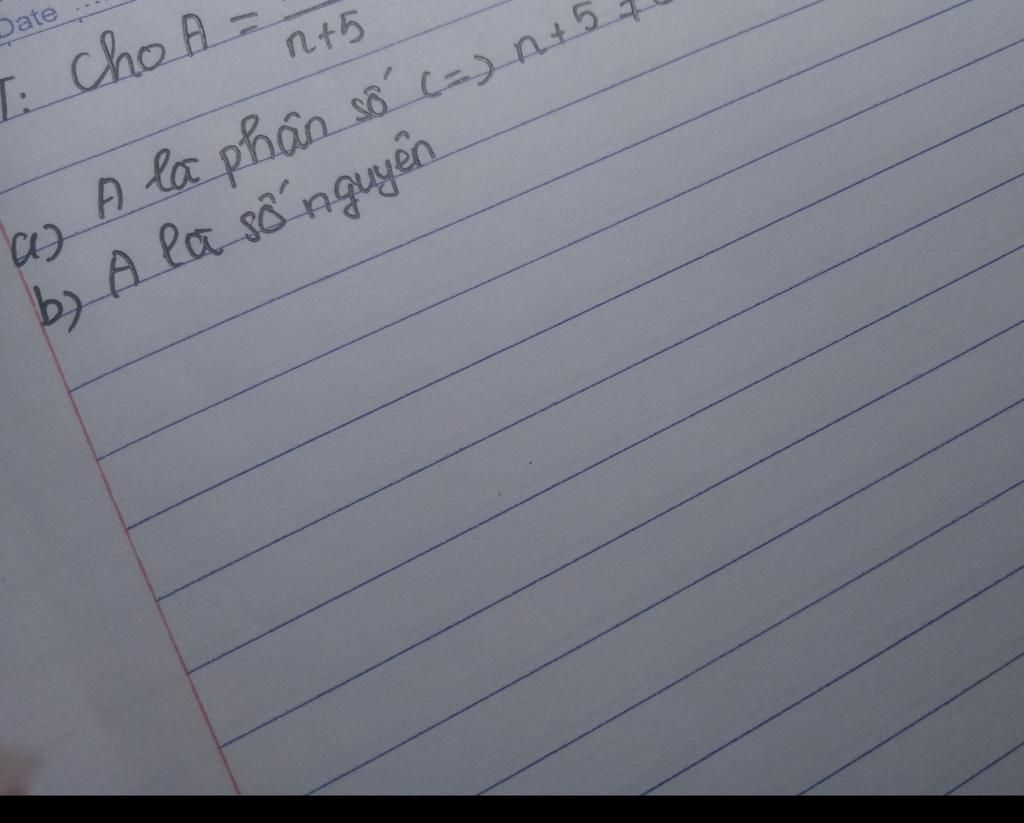 Date ....
T: Cho A = / n+5
a) A là phân số (=) n+5 ≠
b) A là số nguyên